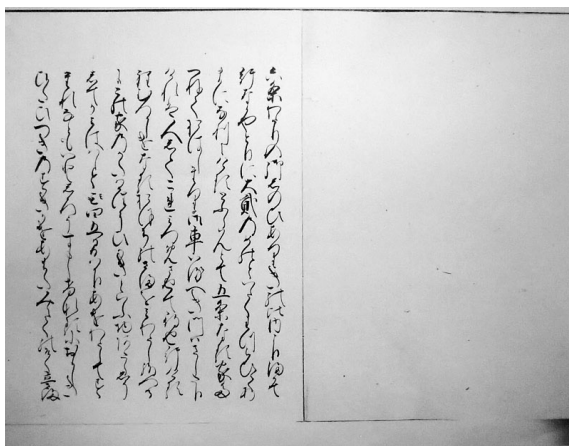 六条わたりの御しのひありきの比内よりまかて
給なかやとりに大貳のめのといたくわつらひて
あまに成にけるとふらはんとて五条なる家た
つねておはしたり御車いるへき門はさしたり
けれは人してこれみつめさせてまたせ給ける
程むつかしけなるおほちのさまを見わたし給へる
にこの家のかたはらにひかきといふ物あたらしう
してかみははしとみ四五けんはかりあけわたしてす
たれなともいとしろうすゝしけなるにおかしき
ひたいつきのすきかけあまたみえてのそく立さま